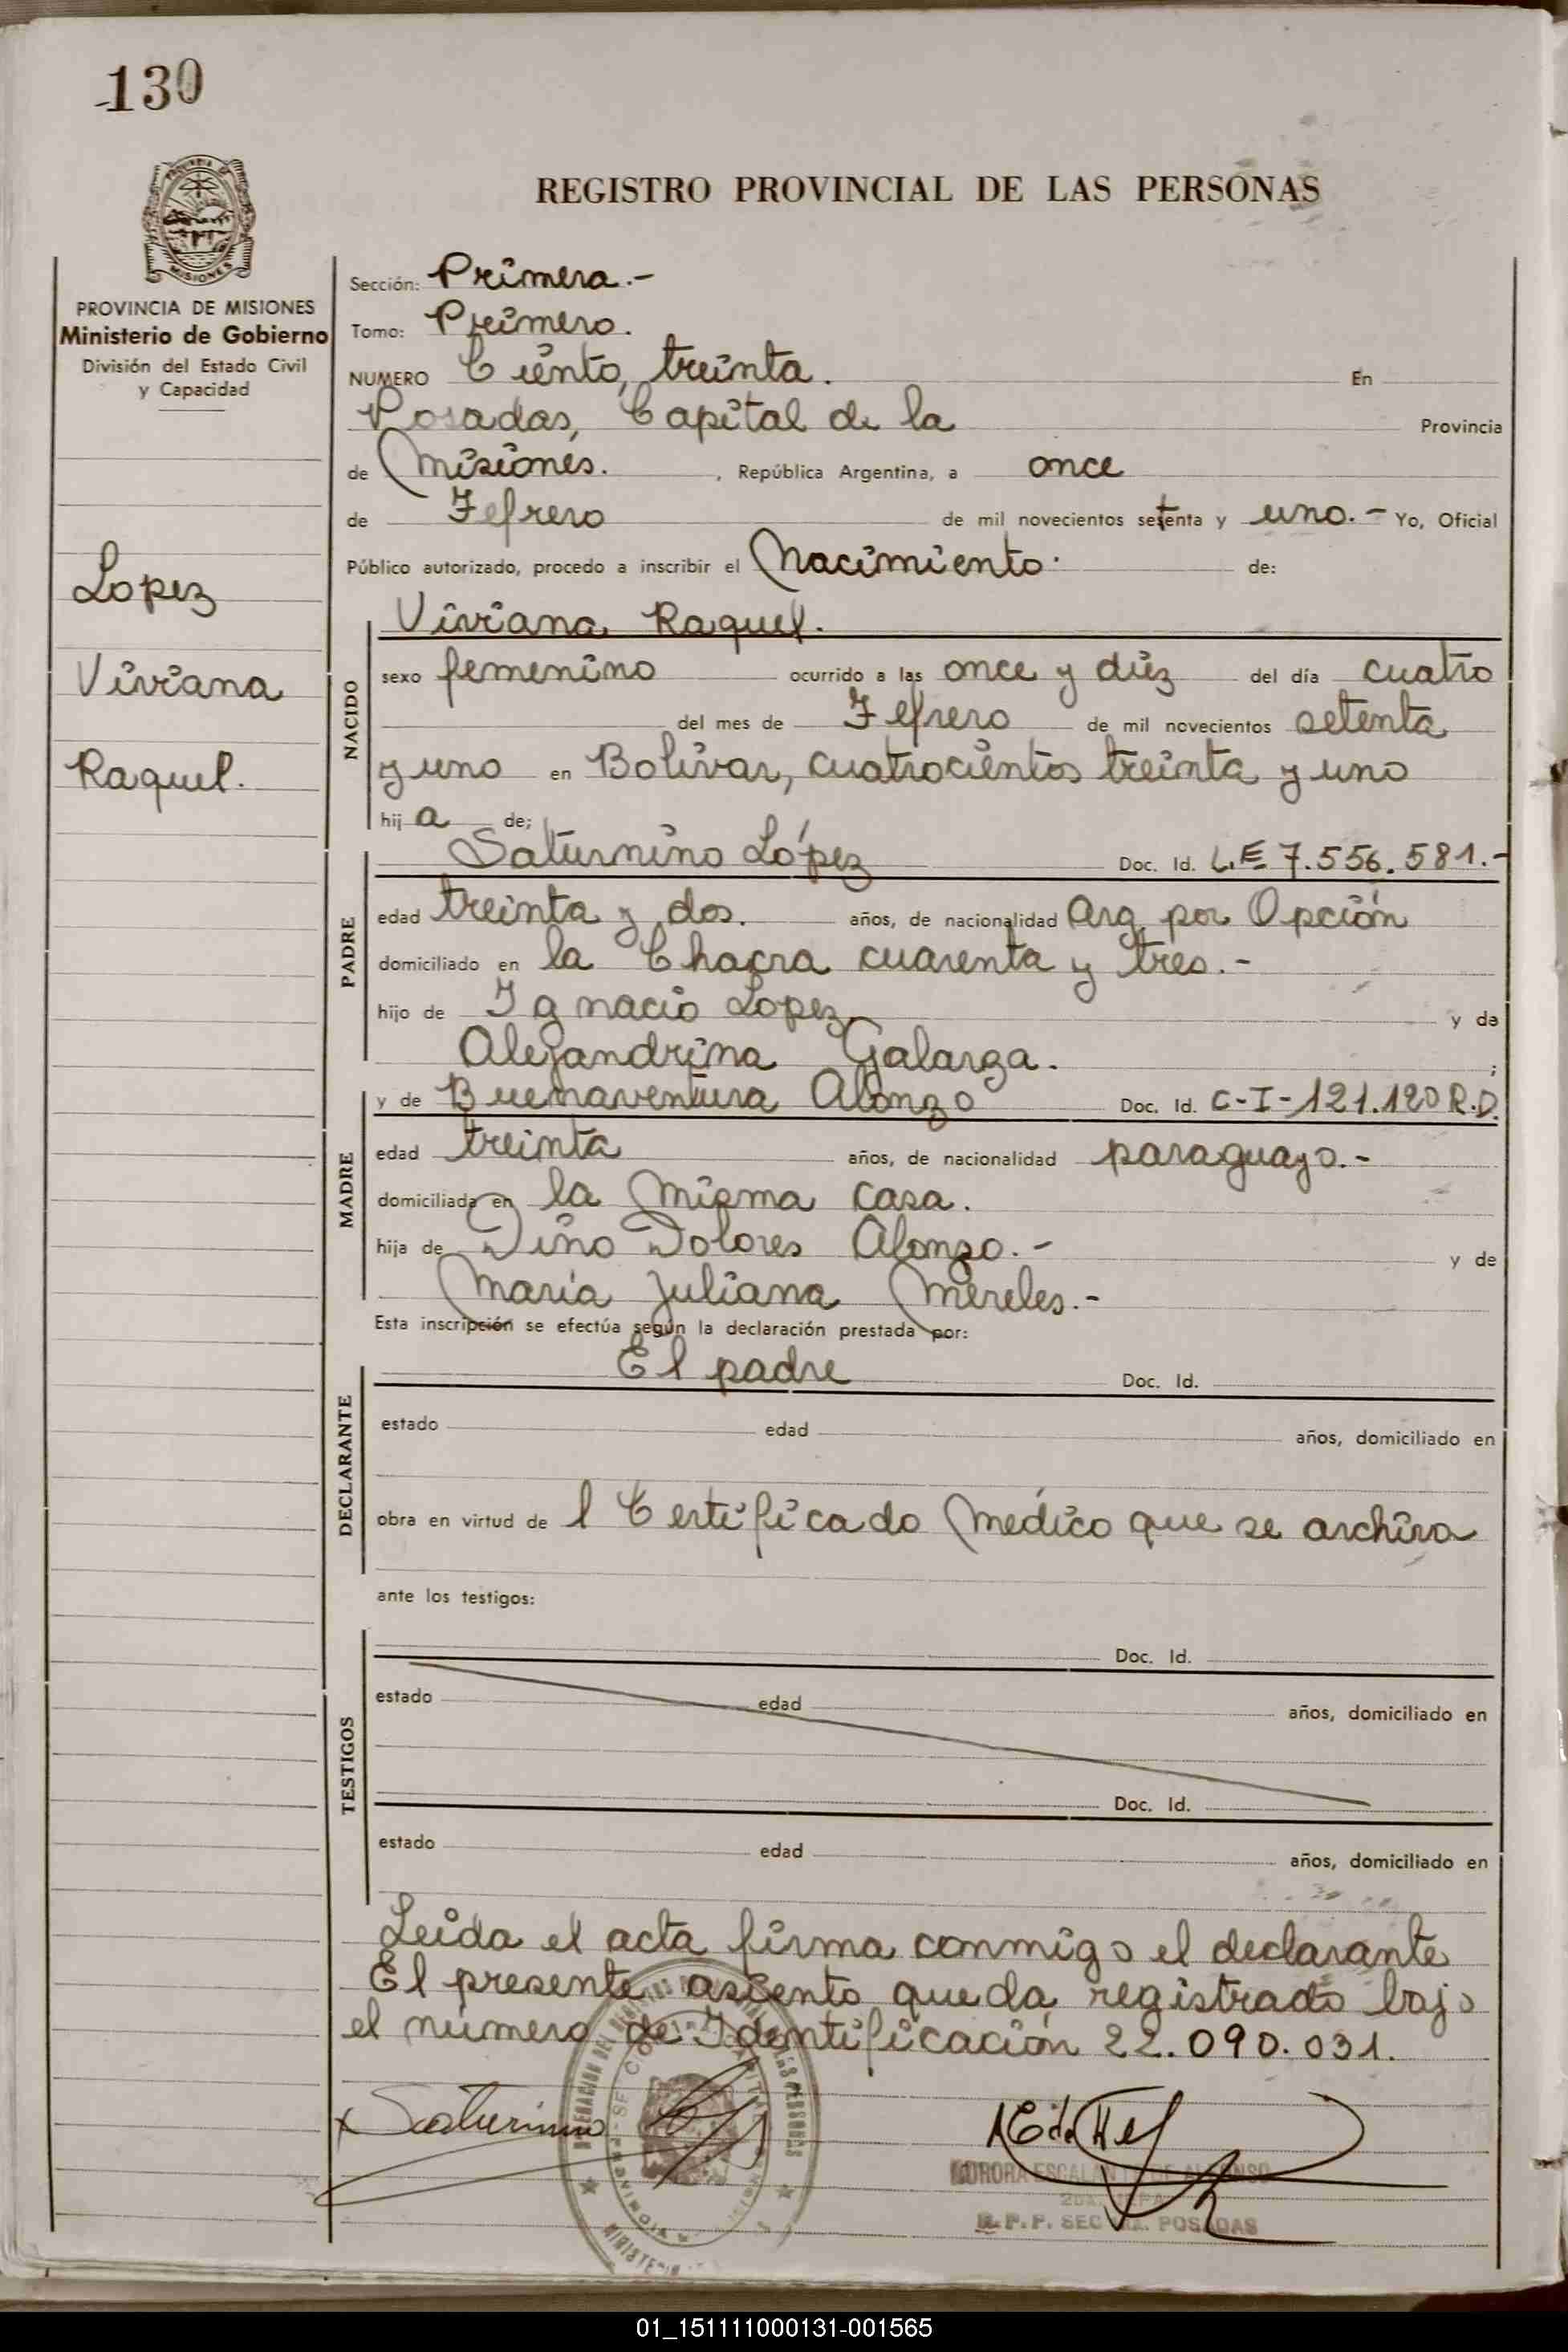 130
REGISTRO PROVINCIAL DE LAS PERSONAS
MISIONES
PROVINCIA DE MISIONES
Ministerio de Gobierno
División del Estado Civil
y Capacidad
Lopez
Viviana
Raquel.
Sección: Primera.-
Tomo: Primero.
NUMERO Ciento, treinta. En
Posadas, Capital de la Provincia
de Misiones. , República Argentina, a once
de Febrero de mil novecientos setenta y uno.- Yo, Oficial
Público autorizado, procedo a inscribir el Nacimiento. de:
NACIDO
Viviana Raquel.
sexo femenino ocurrido a las once y diez del día cuatro
del mes de Febrero de mil novecientos setenta
y uno en Bolívar, cuatrocientos treinta y uno
hij a de;
PADRE
Saturnino López Doc. Id. L.E 7.556.581.-
edad treinta y dos. años, de nacionalidad Arg. por Opción
domiciliado en la Chacra cuarenta y tres.-
hijo de Ignacio Lopez y de
Alejandrina Galarza. ;
MADRE
y de Buenaventura Alonzo Doc. Id. C-I-121.120 R.P.
edad treinta años, de nacionalidad paraguayo.-
domiciliada en la misma casa.
hija de Dino Dolores Alonzo.- y de
María Juliana Mereles.-
Esta inscripción se efectúa según la declaración prestada por:
DECLARANTE
El padre Doc. Id.
estado edad años, domiciliado en
obra en virtud de l Certificado Médico que se archiva
ante los testigos:
TESTIGOS
Doc. Id.
estado edad años, domiciliado en
Doc. Id.
estado edad años, domiciliado en
Leida el acta firma conmigo el declarante
El presente asiento queda registrado bajo
el número de Identificación 22.090.031.
Saturnino
AURORA ESCALANTE DE ALFONSO
R.P.P. SEC 1RA. POSADAS
01_151111000131-001565